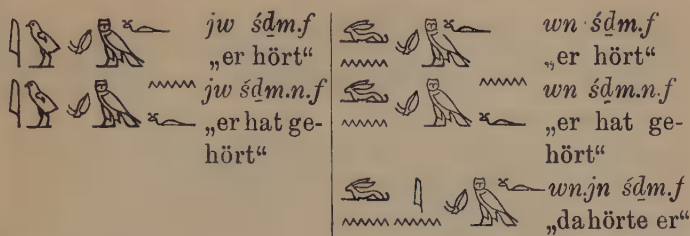 𓇋𓅱𓄔𓅓𓆑 jw śḏm.f
„er hört“
𓇋𓅱𓄔𓅓𓈖𓆑 jw śḏm.n.f
„er hat ge-
hört“
𓃹𓈖𓄔𓅓𓆑 wn śḏm.f
„er hört“
𓃹𓈖𓄔𓅓𓈖𓆑 wn śḏm.n.f
„er hat ge-
hört“
𓃹𓈖𓇋𓈖𓄔𓅓𓆑 wn.jn śḏm.f
„da hörte er“